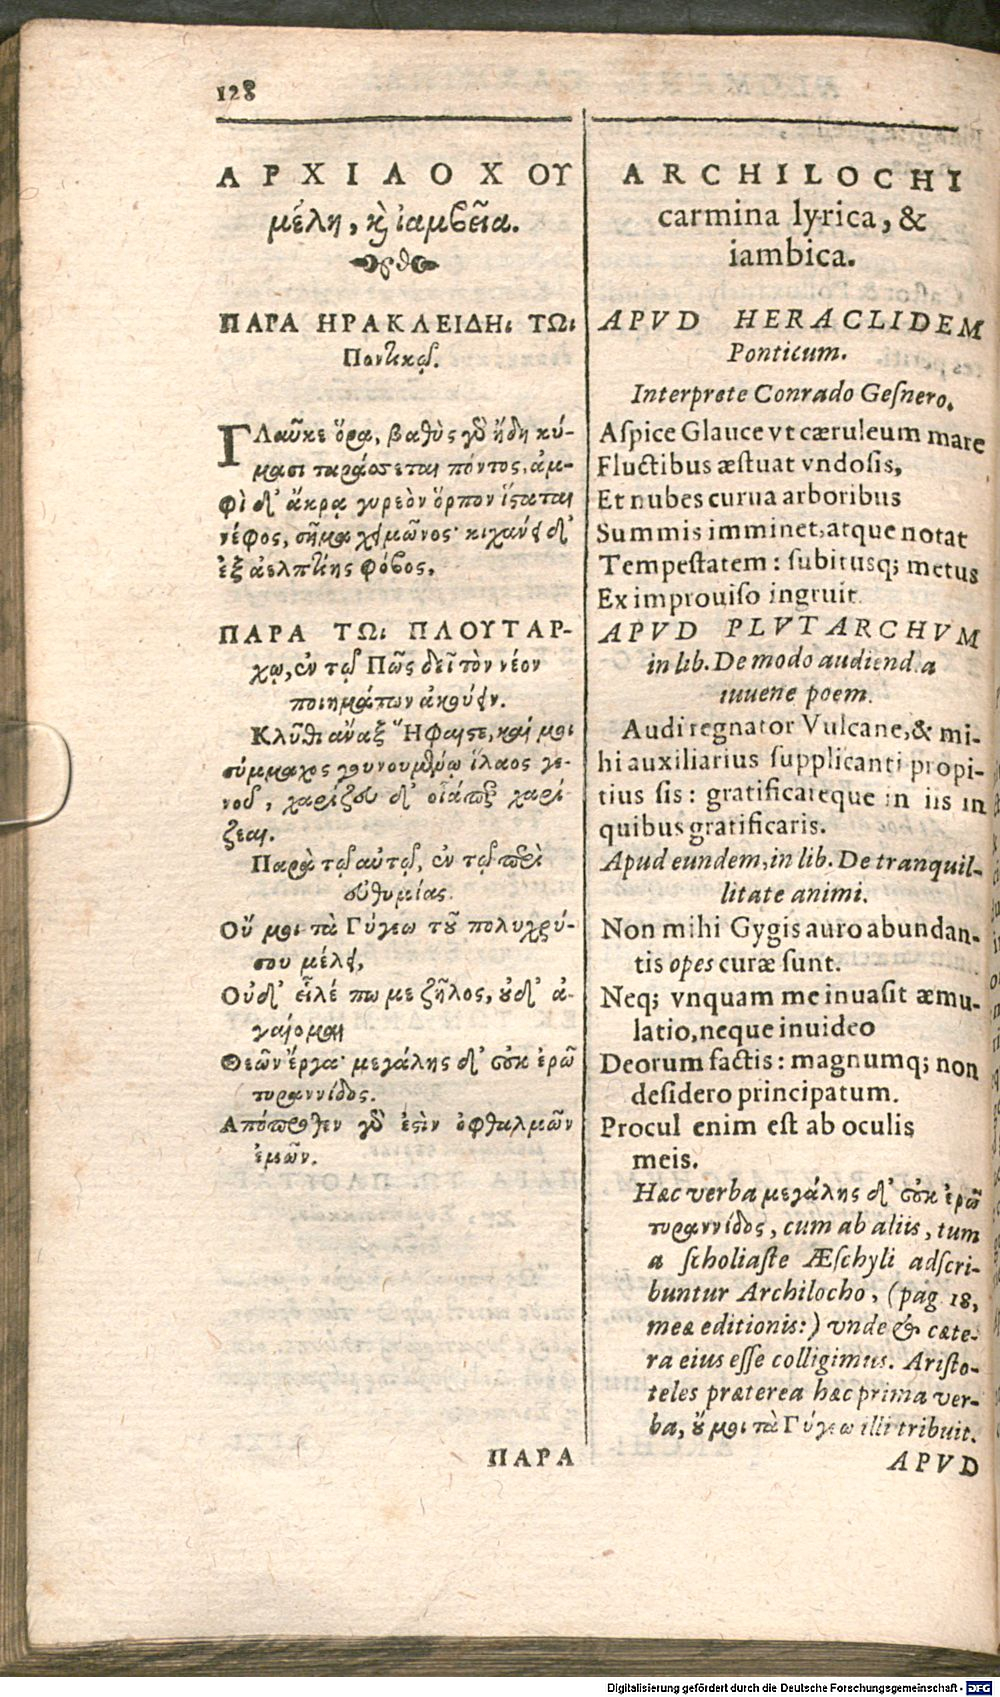 128
ΑΡΧΙΛΟΧΟΥ
μέλη, κỳ ἰαμβεῖα.
ΠΑΡΑ ΗΡΑΚΛΕΙΔΗι ΤΩι
Ποντικῷ.
ΓΛαῦκε ὅρα, βαθὺς γὸ ἤδη κύ-
μασι ταράσσεται πόντος, ἀμ-
φὶ δ' ἄκρα γυρεὸν ὄρπον ἵσαται
νέφος, σῆμα χειμῶνος· κιχάνει δ'
ἐξ ἀελπτίης φόβος.
ΠΑΡΑ ΤΩι ΠΛΟΥΤΑΡ-
χῳ, ἐν τῷ Πῶς δεῖ τὸν νέον
ποιημάτων ἀκούειν.
Κλῦθι ἄναξ Ἥφαιστε, καί μοι
σύμμαχος γουνουμένῳ ἵλαος γε-
νοῦ, χαρίζου δ' οἷάπερ χαρί-
ζεαι.
Παρὰ τῷ αὐτῷ, ἐν τῷ περὶ
εὐθυμίας.
Οὔ μοι τὰ Γύγεω τοῦ πολυχρύ-
σου μέλει,
Οὐδ' εἷλέ πω με ζῆλος, οὐδ' ἀ-
γαίομαι
Θεῶν ἔργα· μεγάλης δ' οὐκ ἐρῶ
τυραννίδος.
Απόπροθεν γὸ ἐστὶν ὀφθαλμῶν
ἐμῶν.
ΠΑΡΑ
ARCHILOCHI
carmina lyrica, &
iambica.
APVD HERACLIDEM
Ponticum.
Interprete Conrado Gesnero.
Aspice Glauce vt cæruleum mare
Fluctibus æstuat vndosis,
Et nubes curua arboribus
Summis imminet, atque notat
Tempestatem: subitusq; metus
Ex improuiso ingruit.
APVD PLVTARCHVM
in lib. De modo audiend. a
iuuene poem.
Audi regnator Vulcane, & mi-
hi auxiliarius supplicanti propi-
tius sis: gratificareque in iis in
quibus gratificaris.
Apud eundem, in lib. De tranquil-
litate animi.
Non mihi Gygis auro abundan-
tis opes curæ sunt.
Neq; vnquam me inuasit æmu-
latio, neque inuideo
Deorum factis: magnumq; non
desidero principatum.
Procul enim est ab oculis
meis.
Hæc verba μεγάλης δ' οὐκ ἐρῶ
τυραννίδος, cum ab aliis, tum
a scholiaste Æschyli adscri-
buntur Archilocho, (pag 18,
meæ editionis:) vnde & cæte-
ra eius esse colligimus. Aristo-
teles præterea hæc prima ver-
ba, οὔ μοι τὰ Γύγεω illi tribuit.
APVD
Digitalisierung gefördert durch die Deutsche Forschungsgemeinschaft - DFG